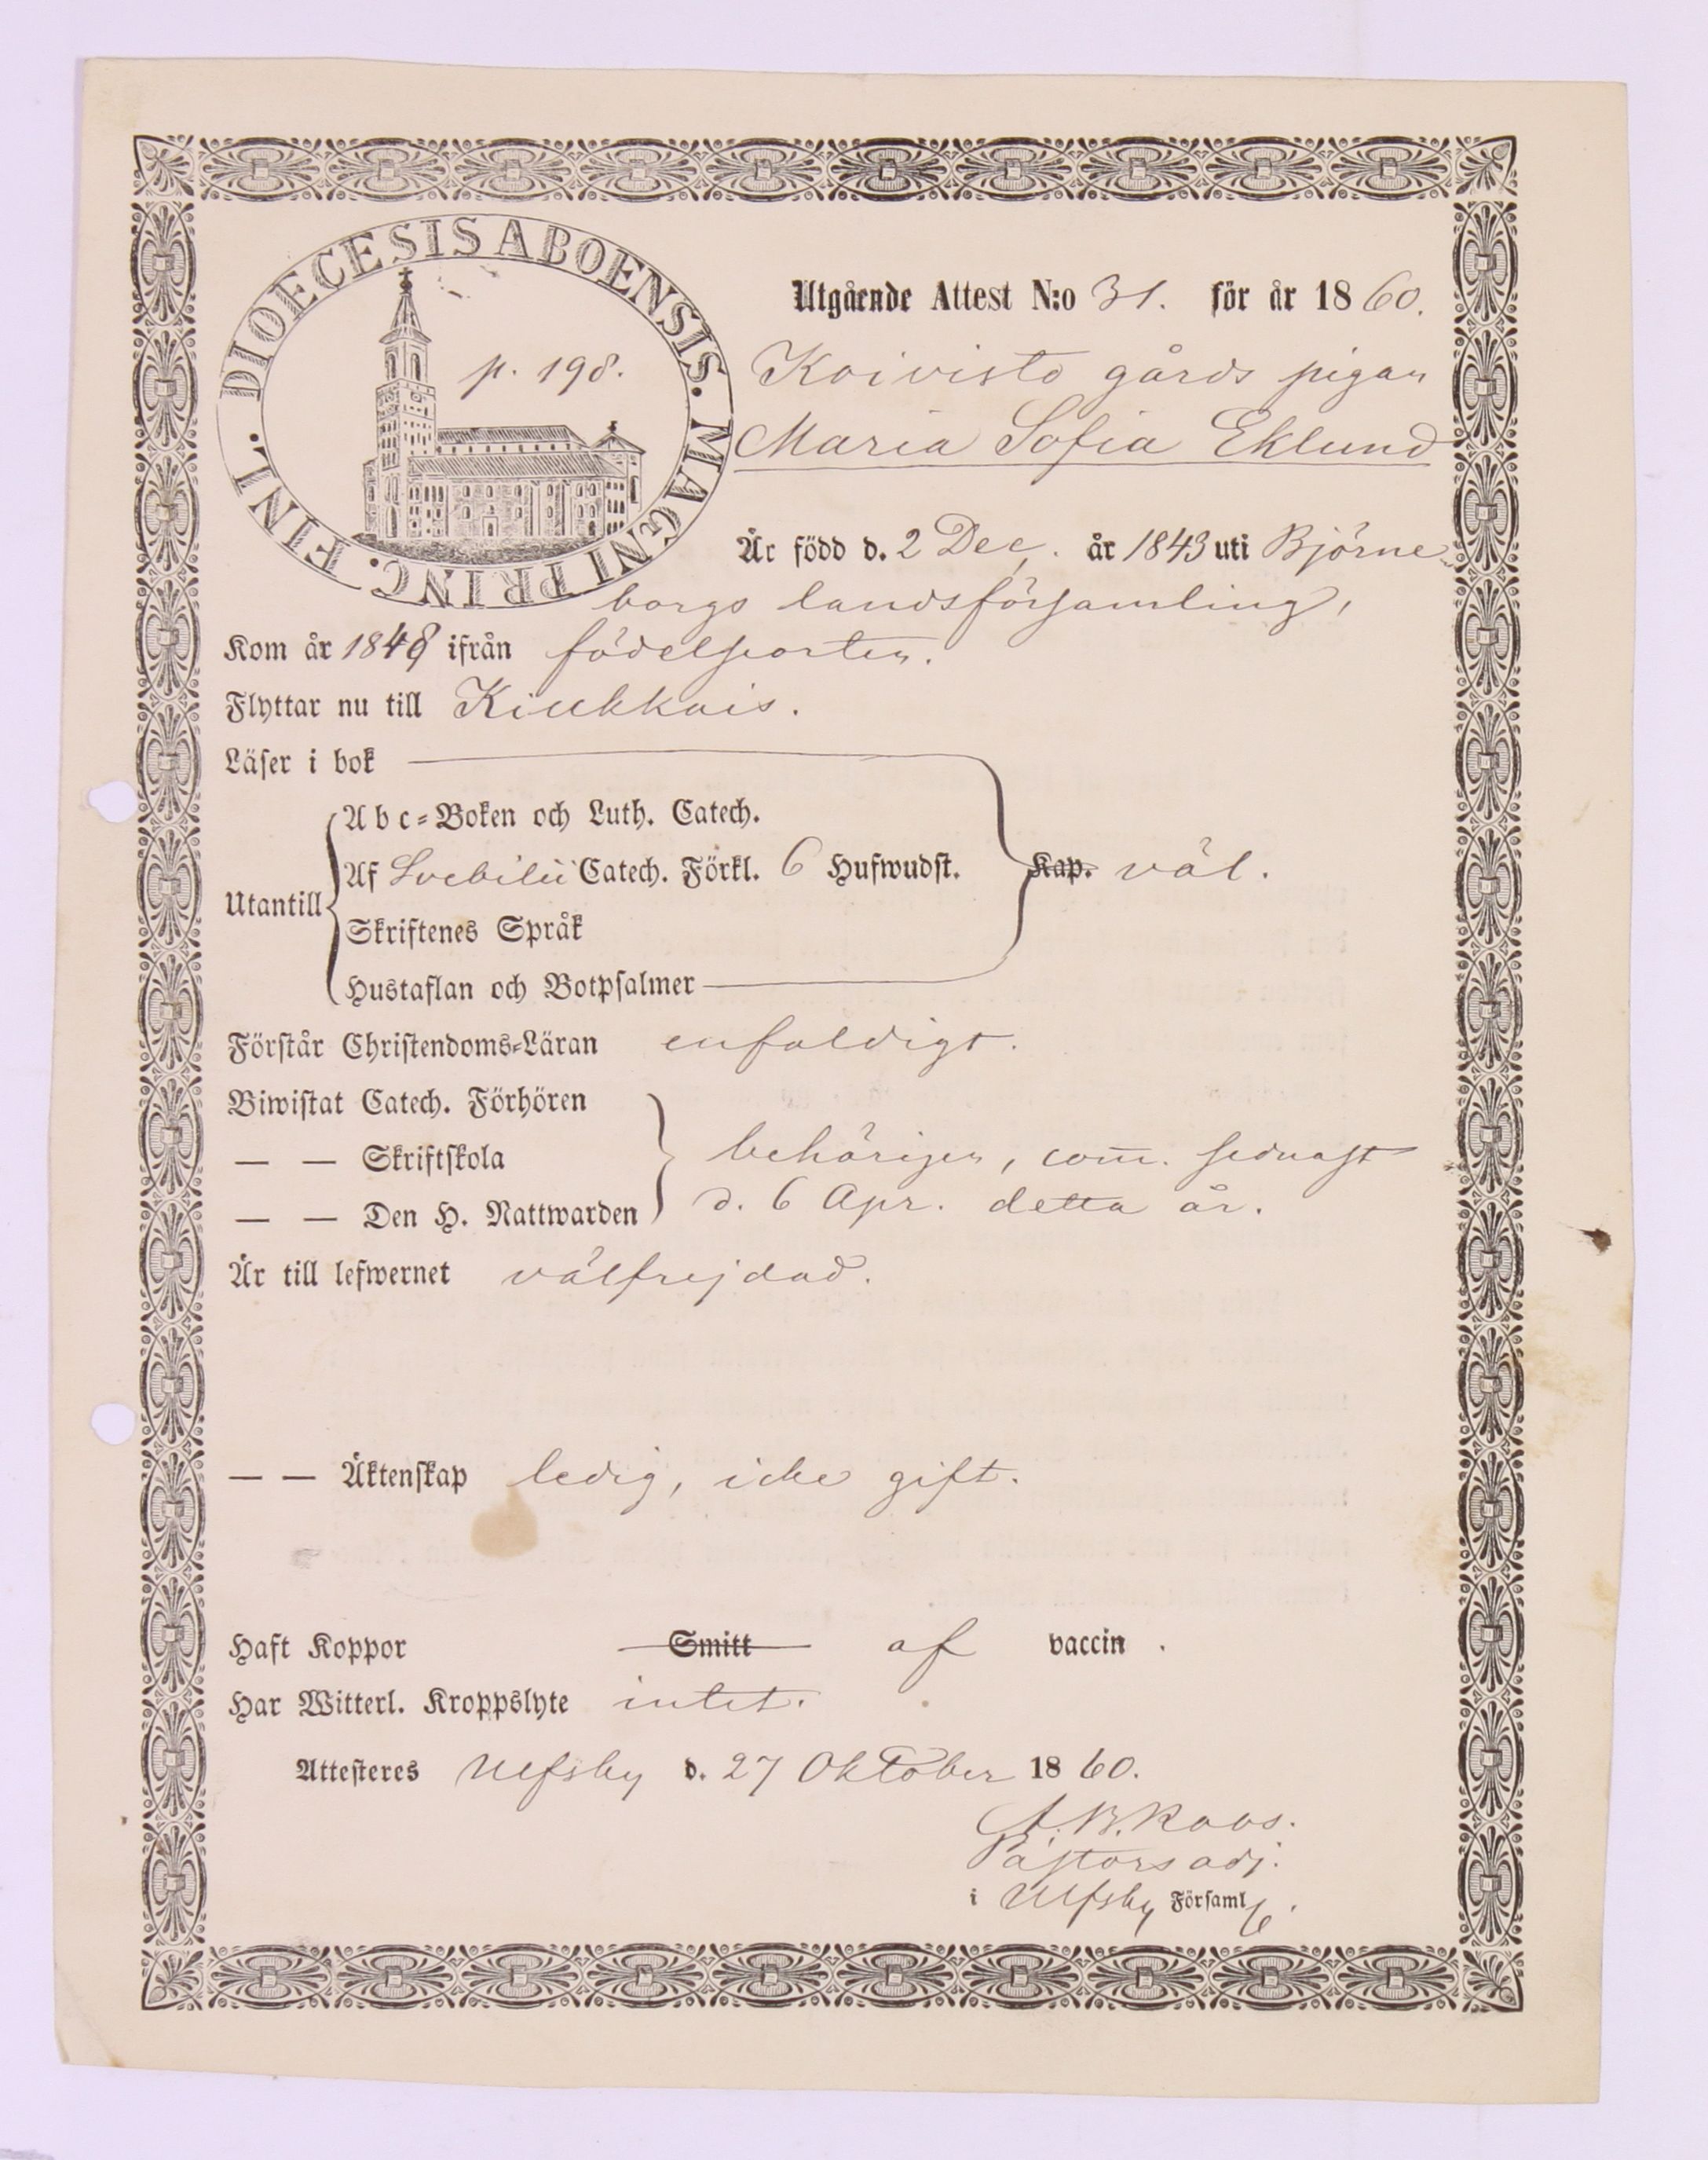 DIOECESIS ABOENSIS. MAGNI PRINC. FINL.
p. 198.
Utgående Attest N:o 31. för år 1860.
Koivisto gårds pigan
Maria Sofia Eklund
Är född d. 2 Dec. år 1843 uti Björne
borgs landsförsamling,
Kom år 1848 ifrån födelseorten.
Flyttar nu till Kiukkais.
Läser i bok
Abc-Boken och Luth. Catech.
Af Svebilii Catech. Förkl. 6 Hufwudst. Kap. väl.
Utantill
Skriftenes Språk
Hustaflan och Botpsalmer
Förstår Christendoms-Läran enfaldigt.
Biwistat Catech. Förhören
— — Skriftskola behörigen, com. sednast
— — Den H. Nattwarden d. 6 Apr. detta år.
Är till lefwernet välfrejdad.
— — Äktenskap ledig, icke gift.
Haft Koppor Smitt af vaccin.
Har Witterl. Kroppslyte intet.
Attesteres Ulfsby d. 27 Oktober 1860.
A. B. Roos.
Pastors adj.
i Ulfsby Församl g.